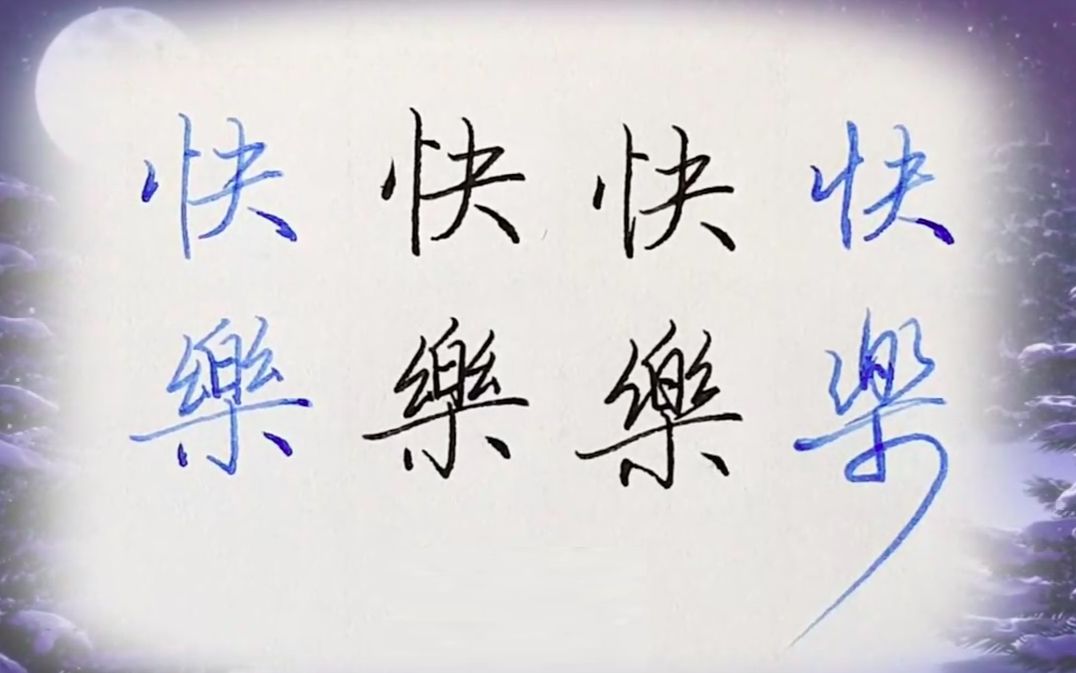 快快快快
樂樂樂樂